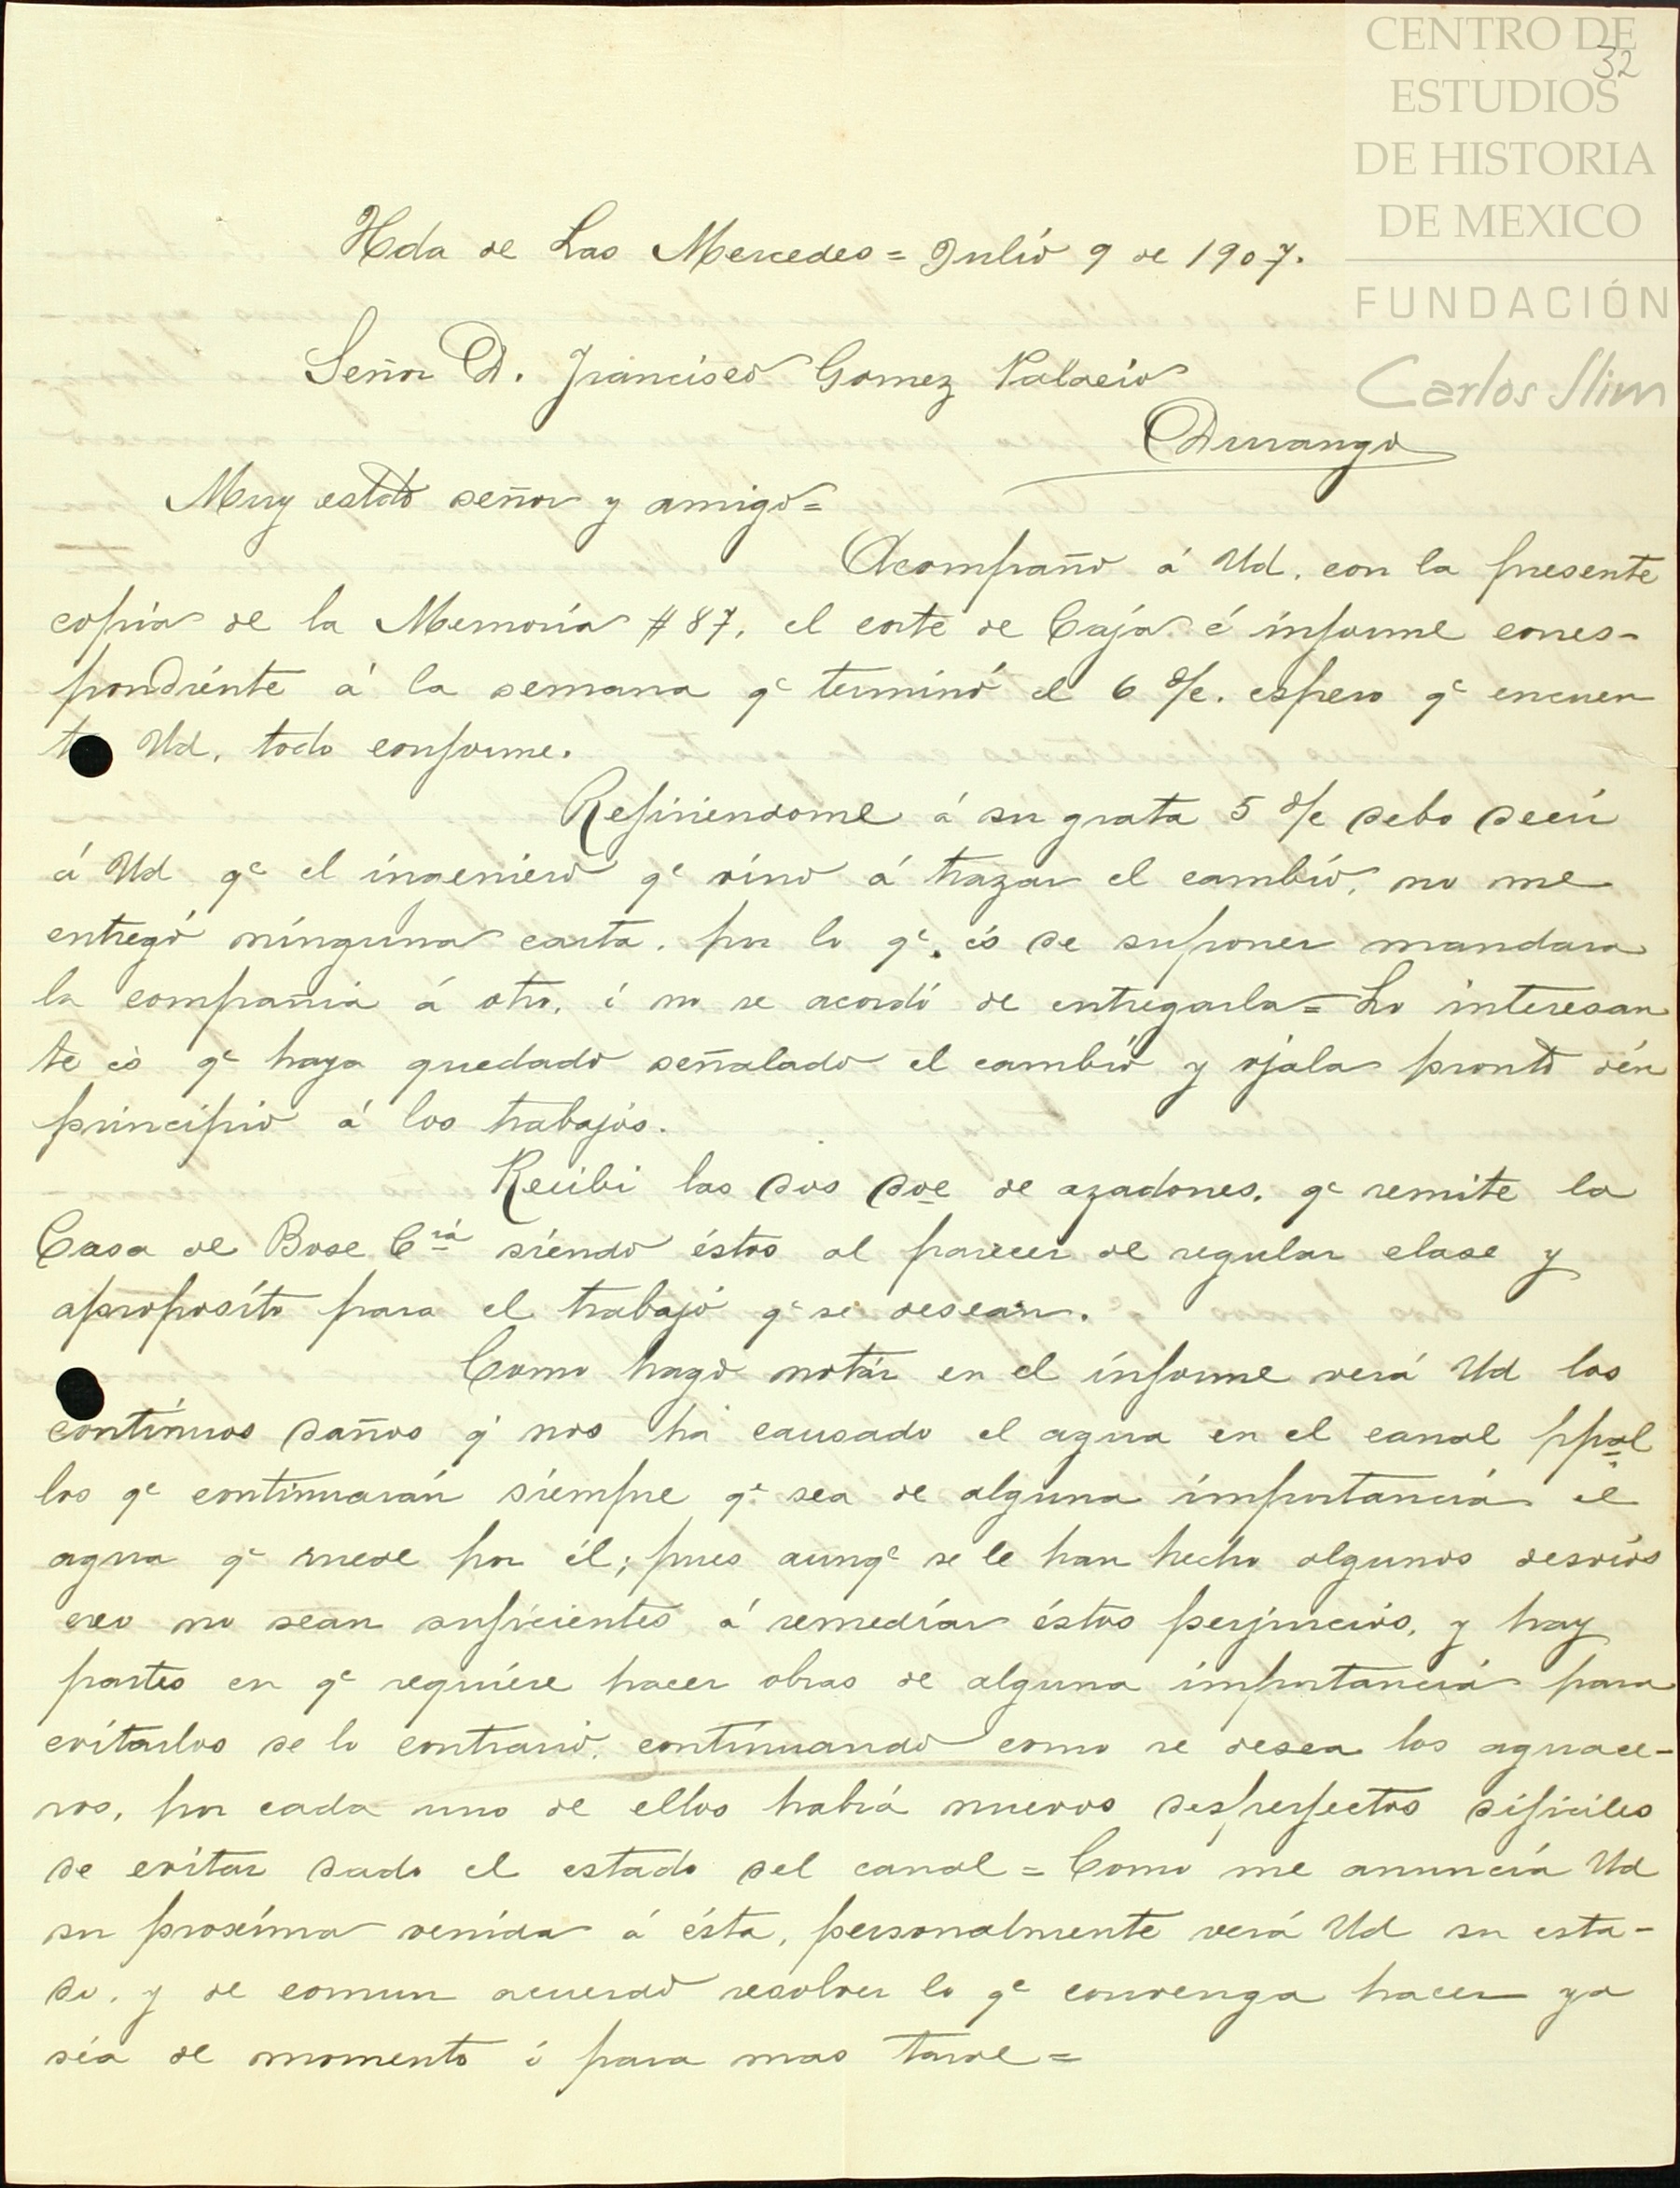 CENTRO DE
32
ESTUDIOS
DE HISTORIA
DE MEXICO
FUNDACIÓN
Carlos Slim
Hda de Las Mercedes = Julio 9 de 1907.
Señor D. Francisco Gomez Palacio
Durango
Muy estdo señor y amigo=
Acompaño á Ud. con la presente
copia de la Memoria #87, el corte de Caja é informe corres-
pondiente á la semana qe terminó el 6 d/c. espero qe encuen
Ud. todo conforme.
Refiriendome á su grata 5 d/c debo decir
á Ud qe el ingeniero qe vino á trazar el cambio, no me
entregó ninguna carta. por lo qe. es de suponer mandara
la compañia á otro, ó no se acordó de entregarla = Lo interesan
te es qe haya quedado señalado el cambio y ojala pronto dén
principio á los trabajos.
Recibi las dos doc de azadones. qe remite la
Casa de Bose Cia siendo éstos al parecer de regular clase y
aproposito para el trabajo qe se desean.
Como hago notár en el informe verá Ud los
continuos daños q' nos há causado el agua en el canal ppal
los qe continuarán siempre qe sea de alguna importancia el
agua qe ruede por él; pues aunqe se le han hecho algunos desvios
creo no sean suficientes á remediar éstos perjuicios, y hay
partes en qe requiere hacer obras de alguna importancia para
evitarlos de lo contrario, continuando como se desea los aguace-
ros, por cada uno de ellos habrá nuevos desperfectos dificiles
de evitar dado el estado del canal = Como me anuncia Ud
su proxima venida á ésta, personalmente verá Ud su esta-
do, y de comun acuerdo resolver lo qe convenga hacer ya
séa de momento ó para mas tarde =